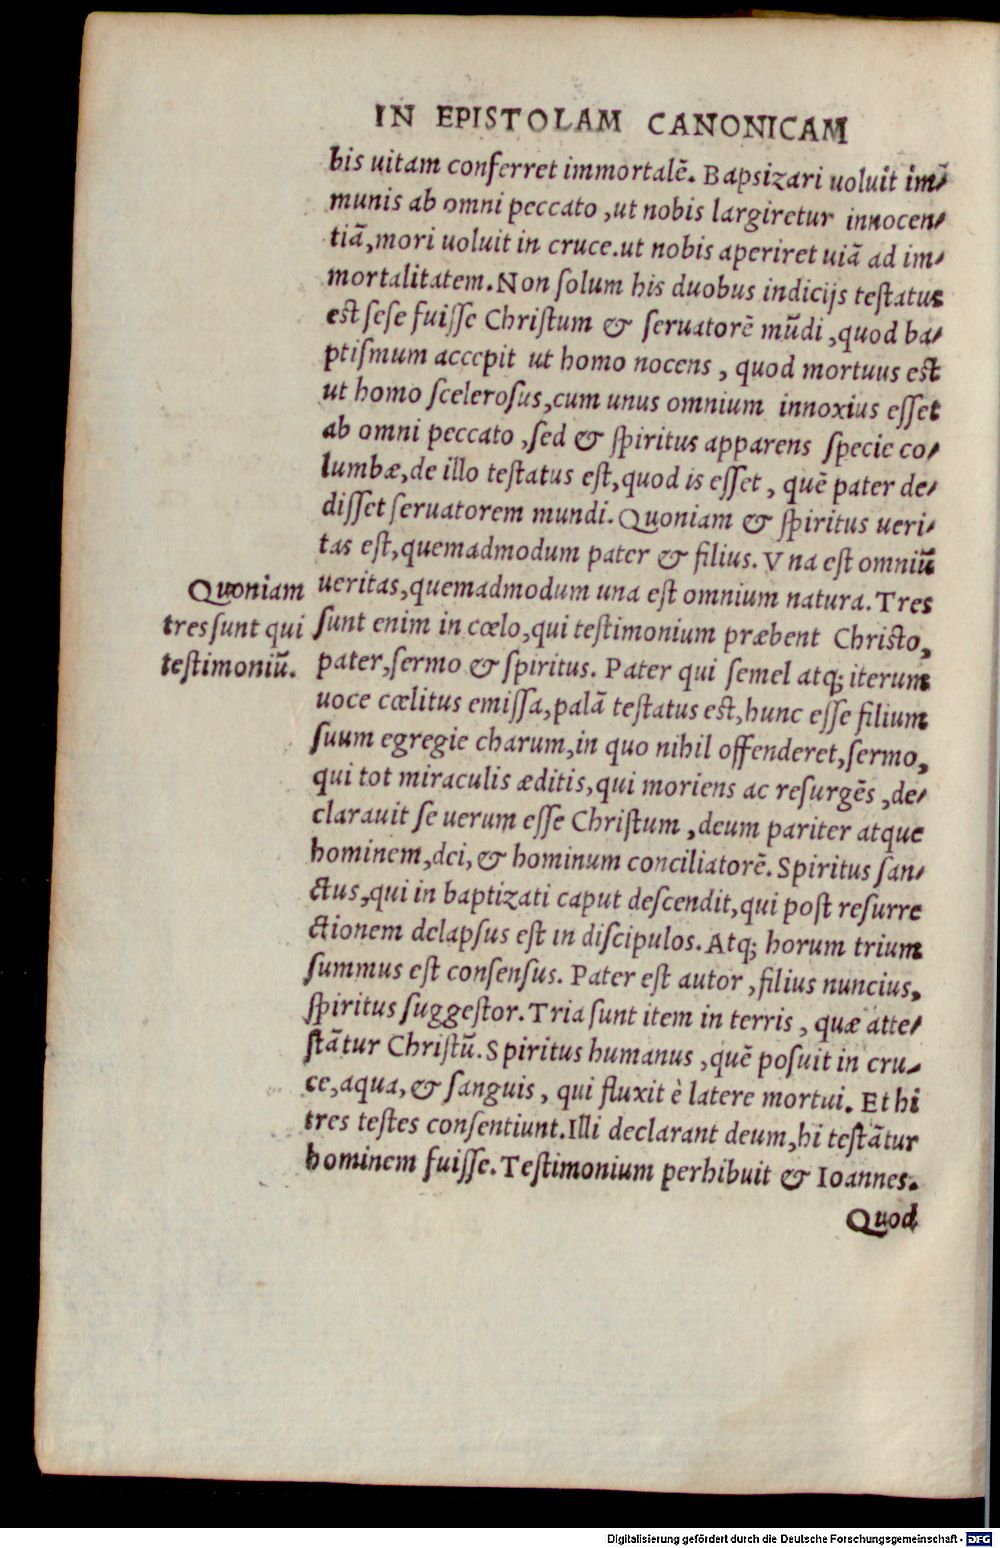 IN EPISTOLAM CANONICAM
bis uitam conferret immortalē. Bapsizari uoluit im̄⸗
munis ab omni peccato ,ut nobis largiretur innocen⸗
tiā,mori uoluit in cruce.ut nobis aperiret uiā ad im⸗
mortalitatem. Non ſolum his duobus indicijs teſtatus
eſt ſeſe fuiſſe Chriſtum & ſeruatorē mūdi ,quod ba⸗
ptiſmum accepit ut homo nocens , quod mortuus eſt
ut homo ſceleroſus,cum unus omnium innoxius eſſet
ab omni peccato ,ſed & ſpiritus apparens ſpecie co⸗
lumbæ,de illo teſtatus eſt,quod is eſſet , quē pater de⸗
diſſet ſeruatorem mundi. Quoniam & ſpiritus ueri⸗
tas eſt,quemadmodum pater & filius. Vna eſt omniū
ueritas,quemadmodum una eſt omnium natura. Tres
ſunt enim in cœlo,qui teſtimonium præbent Chriſto,
pater,ſermo & ſpiritus. Pater qui ſemel atq; iterum
uoce cœlitus emiſſa,palā teſtatus eſt,hunc eſſe filium
ſuum egregie charum,in quo nihil offenderet,ſermo,
qui tot miraculis æditis,qui moriens ac reſurgēs ,de⸗
clarauit ſe uerum eſſe Chriſtum ,deum pariter atque
hominem,dei, & hominum conciliatorē. Spiritus ſan⸗
ctus,qui in baptizati caput deſcendit,qui poſt reſurre
ctionem delapſus eſt in diſcipulos. Atq; horum trium
ſummus eſt conſenſus. Pater eſt autor ,filius nuncius,
ſpiritus ſuggeſtor. Tria ſunt item in terris , quæ atte⸗
ſtātur Chriſtū. Spiritus humanus ,quē poſuit in cru⸗
ce,aqua, & ſanguis , qui fluxit è latere mortui. Et hi
tres teſtes conſentiunt. Illi declarant deum,hi teſtātur
hominem fuiſſe. Teſtimonium perhibuit & Ioannes.
Quod
Quoniam
tres ſunt qui
teſtimoniū.
Digitalisierung gefördert durch die Deutsche Forschungsgemeinschaft - DFG